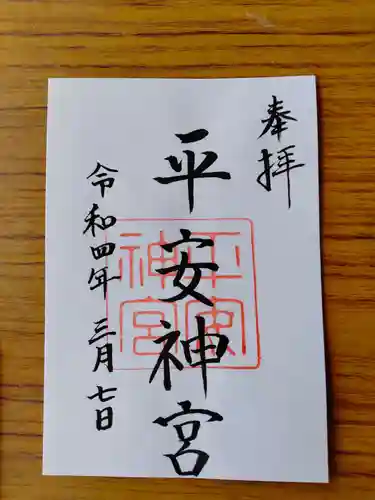 奉拝
平安神宮
平安
神宮
令和四年三月七日